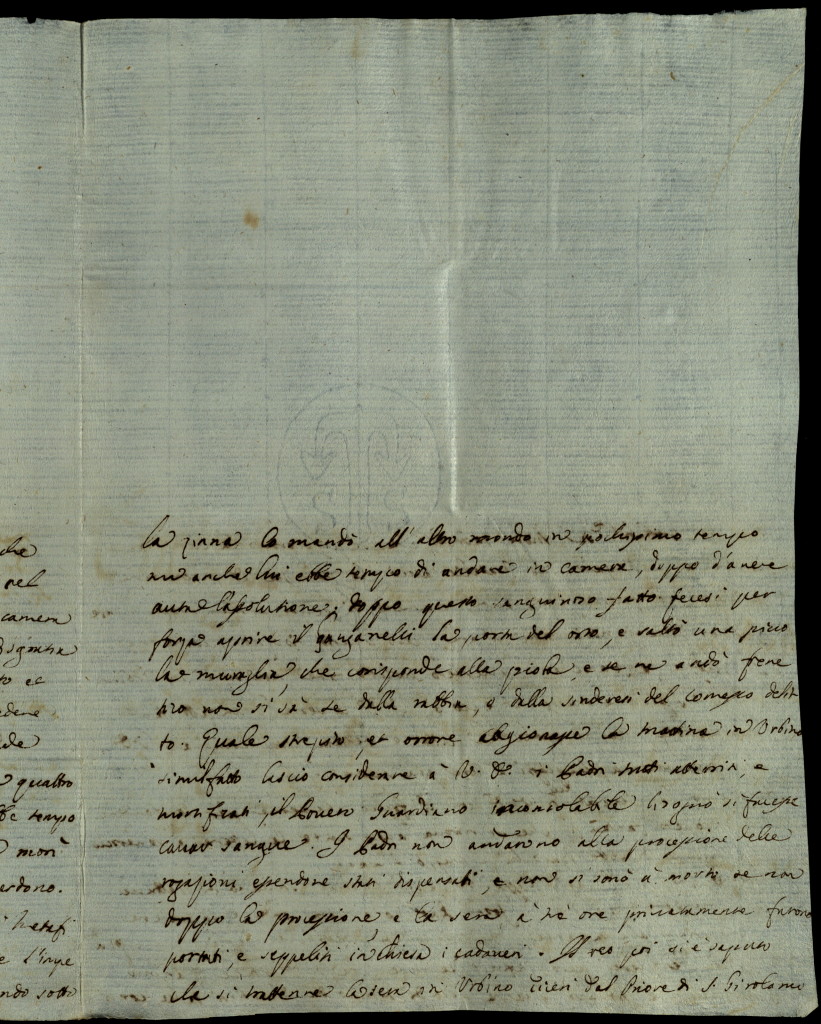 che
nel
camera
to et
edere
quattro
tempo
morì
perdono.
sotto
la zinna lo mandò all'altro mondo in pochissimo tempo
ma anche lui ebbe tempo di andare in camera, doppo d'avere
auta l'assolutione; doppo questo sanguinoso fatto fecesi per
forza aprire il ganganelli la porta del orto, e saltò una picco
la muraglia, che corisponde alla piola, e se ne andò frene
tico non si sà se dalla rabbia, ò dalla sinderesi del comesso delit
to. Quale strepito, et orrore abgionasse la mattina in Urbino
simil fatto lascio considerare à V. S. i Padri tutti atteriti, e
mortificati, il Povero Guardiano inconsolabile bisognò si facesse
cavar sangue. I Padri non andarono alla processione delle
rogazioni essendone stati dispensati, e non si sonò à morto se non
doppo la processione, e la sera à tre ore privatamente furono
portati, e seppeliti in Chiesa i cadaveri. Il reo poi si è saputo
che si trattenne la sera in Urbino dal Priore di S. Girolamo